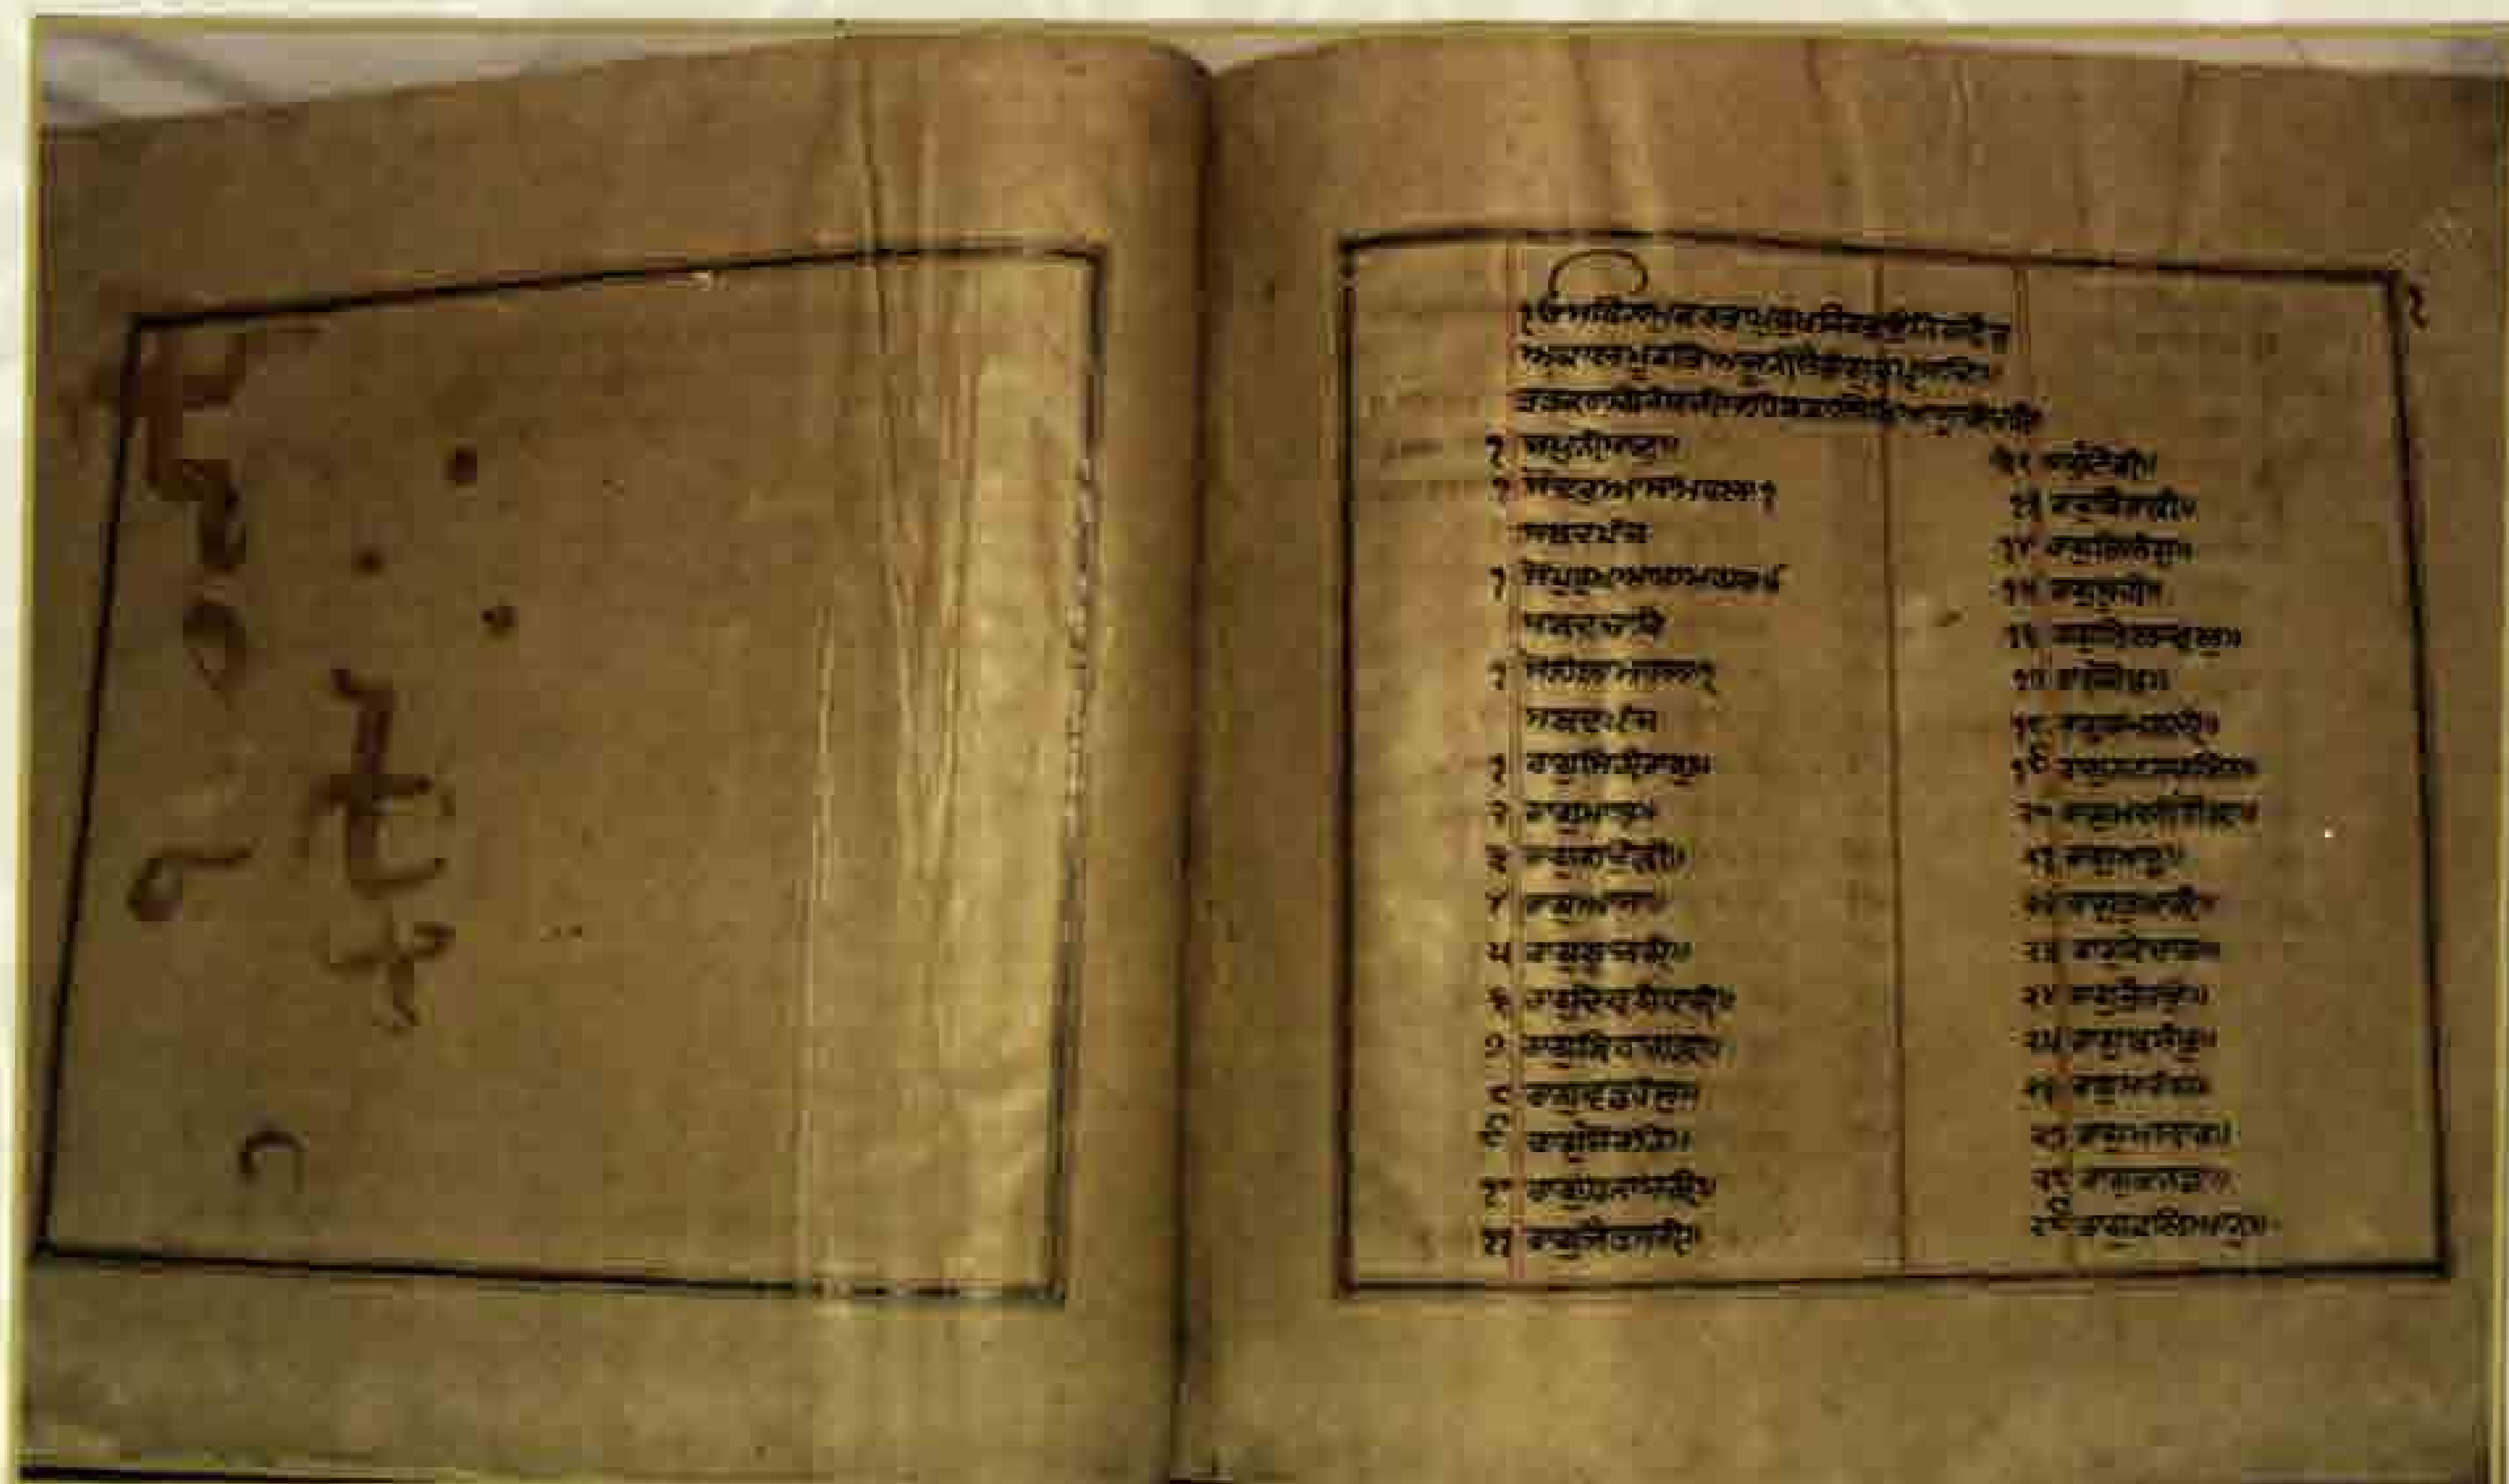 ੧
ੴ ਸਤਿਨਾਮੁ ਕਰਤਾ ਪੁਰਖੁ ਨਿਰਭਉ ਨਿਰਵੈਰੁ
ਅਕਾਲ ਮੂਰਤਿ ਅਜੂਨੀ ਸੈਭੰ ਗੁਰਪ੍ਰਸਾਦਿ॥
੧ ਜਪੁ ਨੀਸਾਣੁ॥
੧ ਸੋਦਰੁ ਆਸਾ ਮਹਲਾ ੧
ਸਬਦ ਪੰਜ
੧ ਸੋਪੁਰਖੁ ਆਸਾ ਮਹਲਾ ੪
ਸਬਦ ਚਾਰਿ
੧ ਸੋਹਿਲਾ ਮਹਲਾ ੧
ਸਬਦ ਪੰਜ
੧ ਰਾਗੁ ਸਿਰੀਰਾਗੁ॥
੨ ਰਾਗੁ ਮਾਝ॥
੩ ਰਾਗੁ ਗਉੜੀ॥
੪ ਰਾਗੁ ਆਸਾ॥
੫ ਰਾਗੁ ਗੂਜਰੀ॥
੬ ਰਾਗੁ ਦੇਵਗੰਧਾਰੀ॥
੭ ਰਾਗੁ ਬਿਹਾਗੜਾ॥
੮ ਰਾਗੁ ਵਡਹੰਸੁ॥
੯ ਰਾਗੁ ਸੋਰਠਿ॥
੧੦ ਰਾਗੁ ਧਨਾਸਰੀ॥
੧੧ ਰਾਗੁ ਜੈਤਸਰੀ॥
੧੨ ਰਾਗੁ ਟੋਡੀ॥
੧੩ ਰਾਗੁ ਬੈਰਾੜੀ॥
੧੪ ਰਾਗੁ ਤਿਲੰਗੁ॥
੧੫ ਰਾਗੁ ਸੂਹੀ॥
੧੬ ਰਾਗੁ ਬਿਲਾਵਲੁ॥
੧੭ ਰਾਗੁ ਗੋਂਡ॥
੧੮ ਰਾਗੁ ਰਾਮਕਲੀ॥
੧੯ ਰਾਗੁ ਨਟਨਾਰਾਇਨ॥
੨੦ ਰਾਗੁ ਮਾਲੀਗਉੜਾ॥
੨੧ ਰਾਗੁ ਮਾਰੂ॥
੨੨ ਰਾਗੁ ਤੁਖਾਰੀ॥
੨੩ ਰਾਗੁ ਕੇਦਾਰਾ॥
੨੪ ਰਾਗੁ ਭੈਰਉ॥
੨੫ ਰਾਗੁ ਬਸੰਤੁ॥
੨੬ ਰਾਗੁ ਸਾਰੰਗ॥
੨੭ ਰਾਗੁ ਮਲਾਰ॥
੨੮ ਰਾਗੁ ਕਾਨੜਾ॥
੨੯ ਰਾਗੁ ਕਲਿਆਨੁ॥